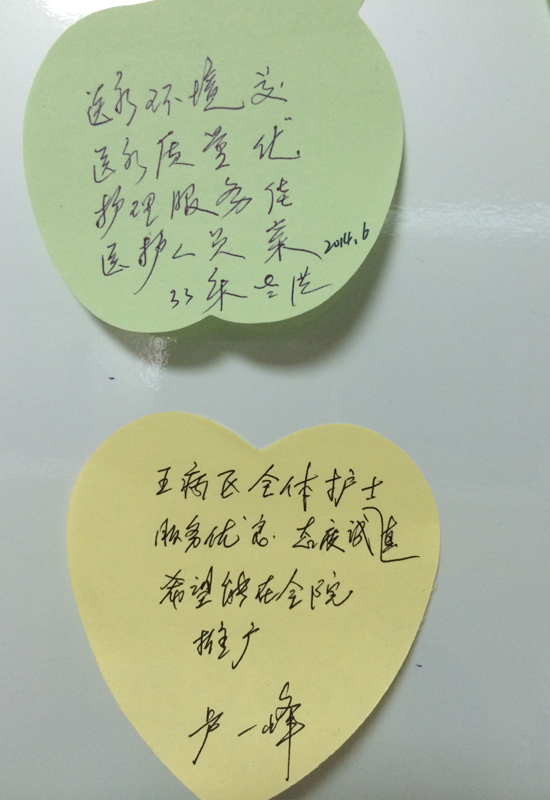 医疗环境
医疗质量优
护理服务佳
医护人员
2014.6
33
五病区全体护士
服务优 态度诚
希望能在全院
推广
卢一峰